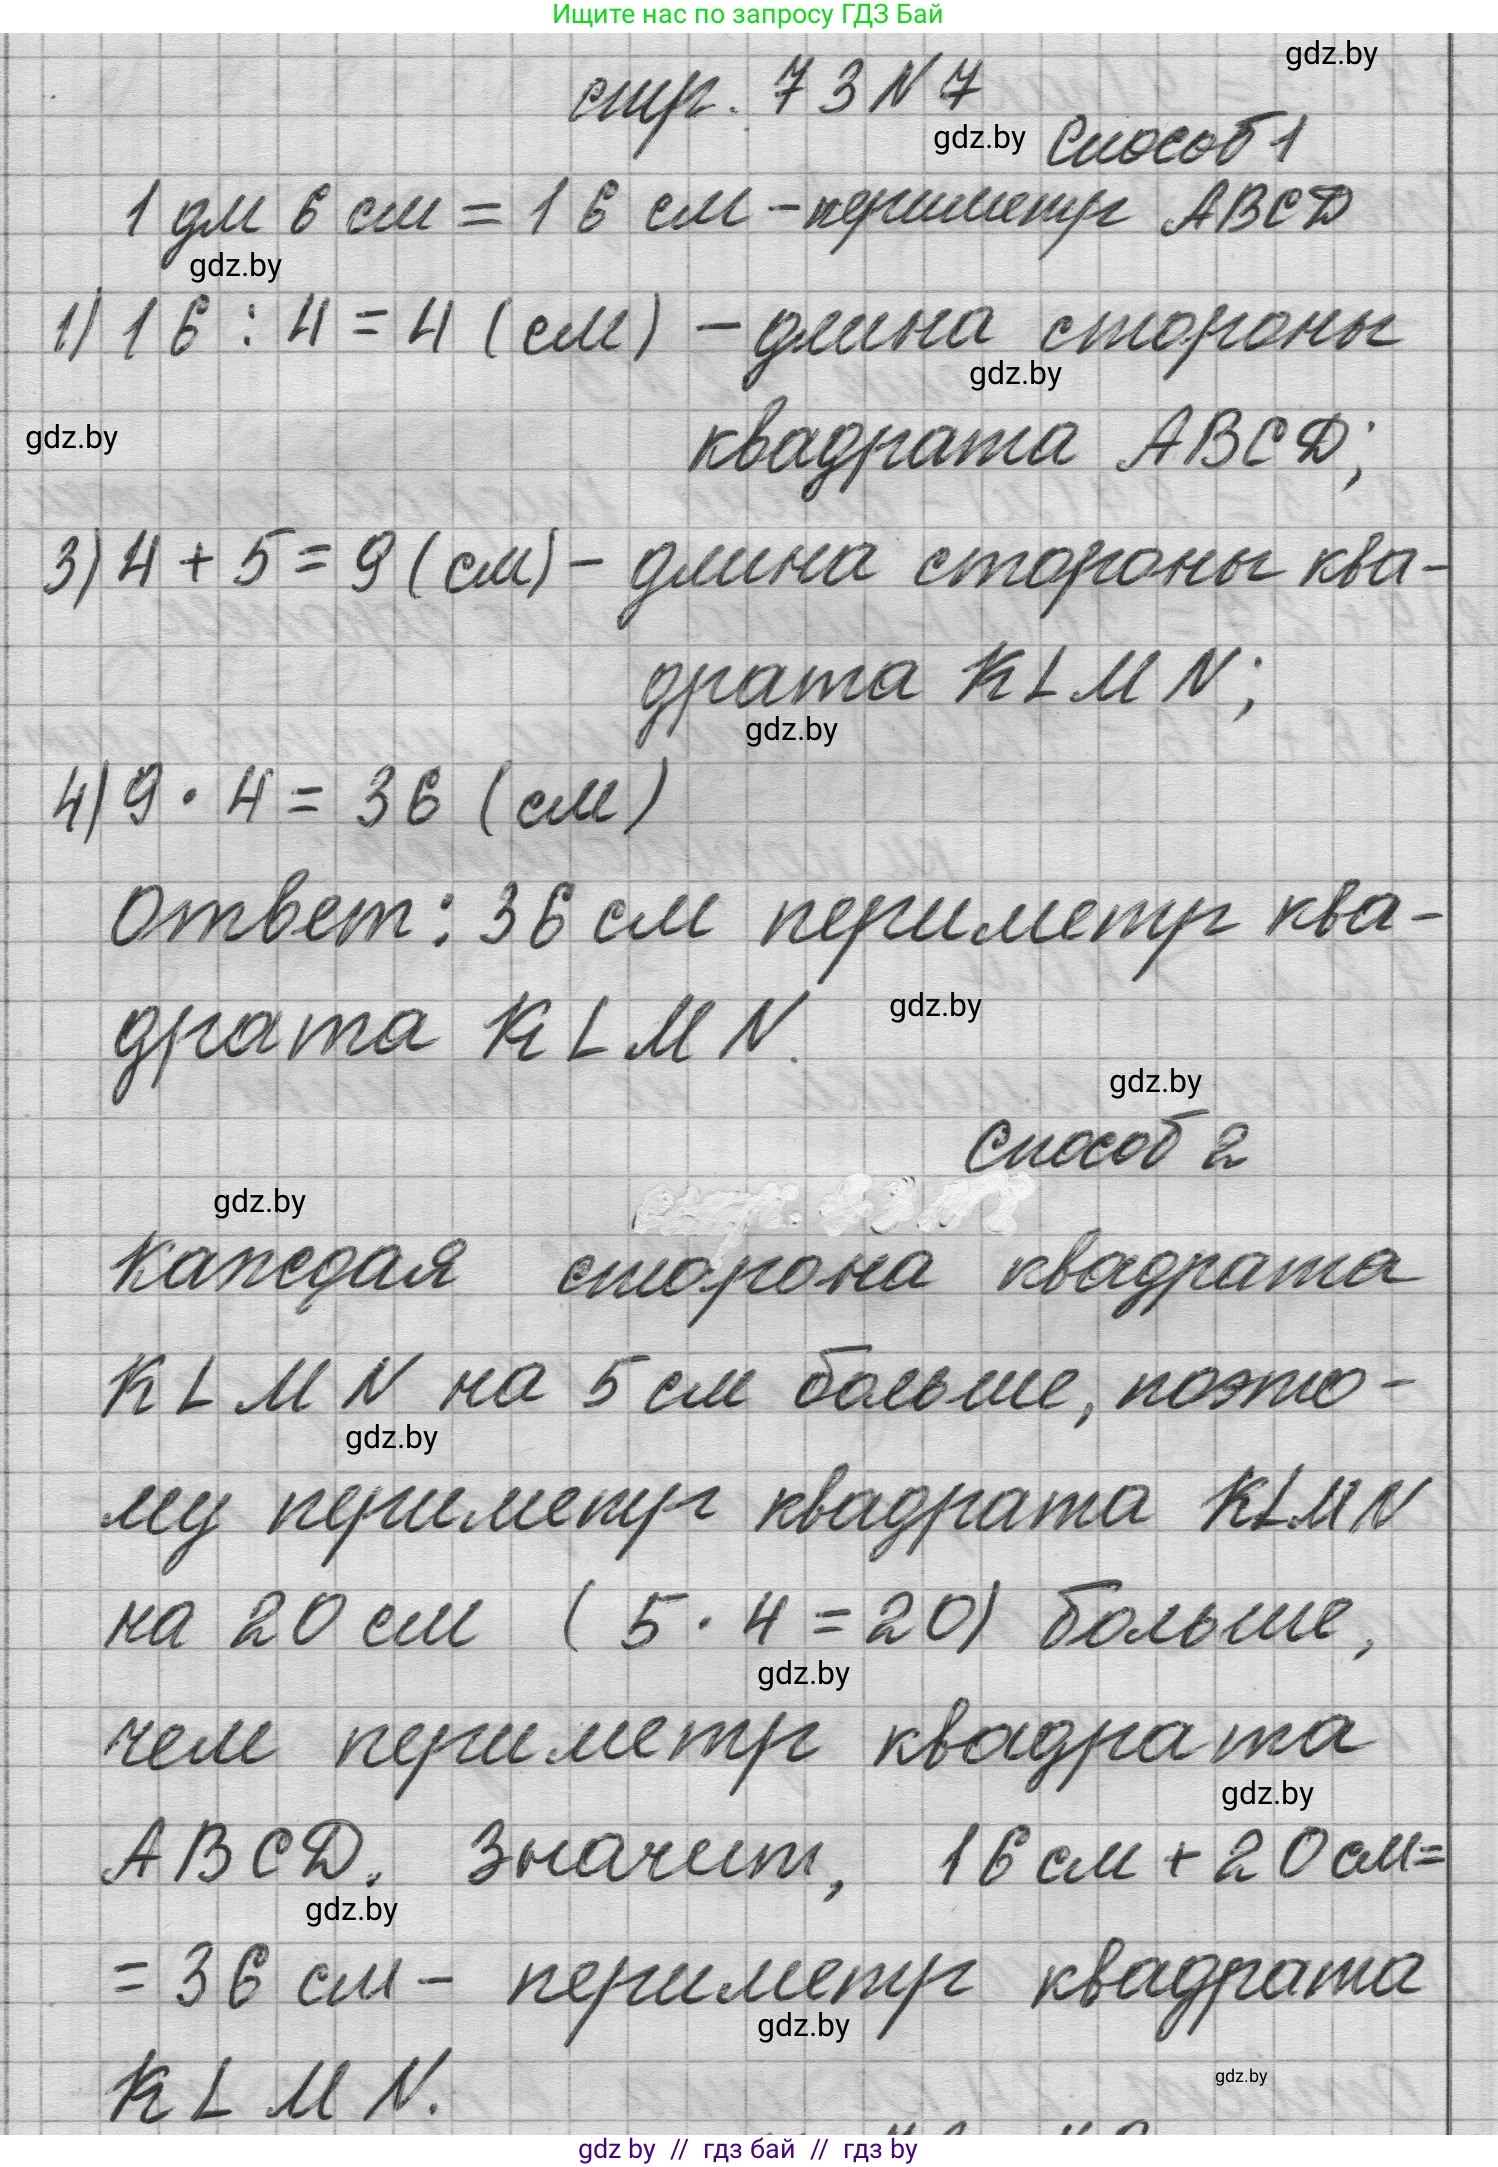 Ищите нас по запросу ГДЗ Бай
gdz.by
стр. 73 N 7
gdz.by
Способ 1
1 дм 6 см = 16 см - периметр ABCD
gdz.by
1) 16 : 4 = 4 (см) - длина стороны
gdz.by
gdz.by
квадрата ABCD;
3) 4 + 5 = 9 (см) - длина стороны ква-
драта KLMN;
gdz.by
4) 9 · 4 = 36 (см)
Ответ: 36 см периметр ква-
драта KLMN.
gdz.by
gdz.by
Способ 2
gdz.by
Каждая сторона квадрата
KLMN на 5 см больше, поэто-
gdz.by
му периметр квадрата KLMN
на 20 см (5 · 4 = 20) больше,
gdz.by
чем периметр квадрата
gdz.by
ABCD. Значит, 16 см + 20 см =
gdz.by
= 36 см - периметр квадрата
gdz.by
KLMN.
gdz.by
gdz by // гдз бай // гдз by